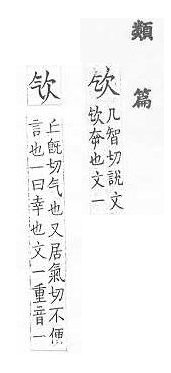 類篇
㰟
几智切說文
㰟㚔也文一
㰟
丘既切气也又居氣切不便
言也一曰幸也文一重音一